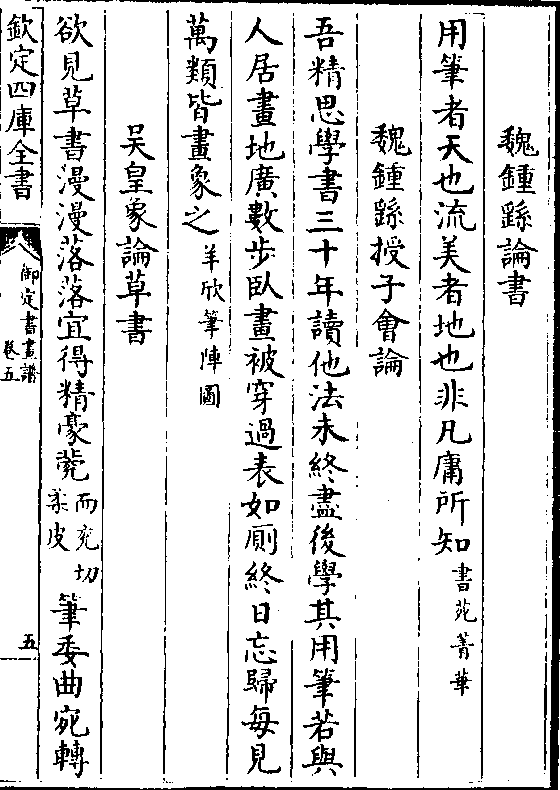 魏鍾繇論書
用筆者天也流美者地也非凡庸所知書苑菁華
魏鍾繇授子會論
吾精思學書三十年讀他法未終盡後學其用筆若與
人居畫地廣數步臥畫被穿過表如厠終日忘歸每見
萬類皆畫象之羊欣筆陣圖
吳皇象論草書
欲見草書漫漫落落宜得精豪㼱而兖切柔皮筆委曲宛轉
欽定四庫全書
御定書畫譜
卷五
五